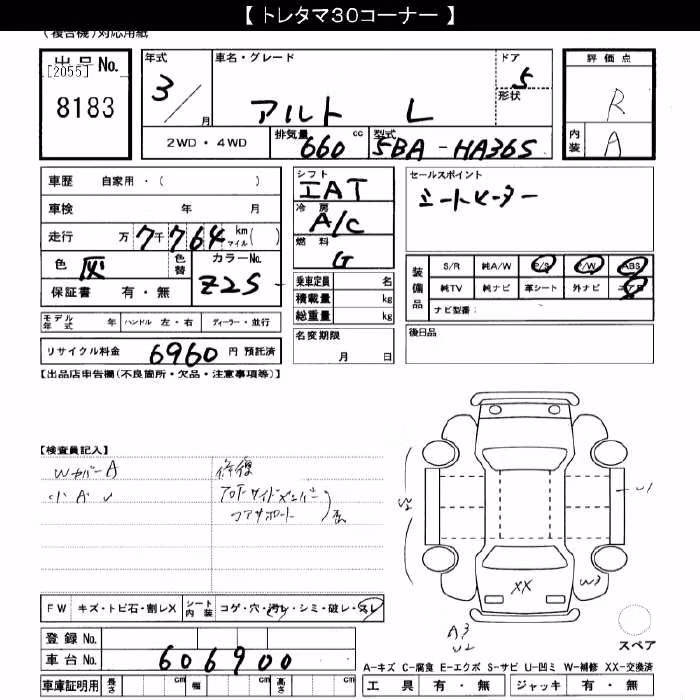 【 トレタマ30コーナー 】
(複合機)対応用紙
出品No.
[2055]
8183
年式
3/
月
車名・グレード
アルト L
ドア
5
形状
2WD・4WD
排気量
660 cc
型式
5BA-HA36S
評価点
R
内装
A
車歴 自家用・( )
車検 年 月
走行 万 7千 764 km マイル ( )
色 灰
色替
カラーNo.
Z2S
保証書 有・無
シフト
IAT
冷房
A/C
燃料
G
乗車定員 名
積載量 kg
総重量 kg
セールスポイント
シートヒーター
装備品
S/R 純A/W P/S P/W ABS
純TV 純ナビ 革シート 外ナビ エアB
ナビ型番:
モデル年式 年 ハンドル 左・右 ディーラー・並行
リサイクル料金 6960 円 預託済
名変期限
月 日
後日品
【出品店申告欄(不良箇所・欠品・注意事項等)】
【検査員記入】
WカバーA
小A
修復
コアサポート
U1
W3
XX
A3
U2
FW キズ・トビ石・割レX
シート内装 コゲ・穴・汚レ・シミ・破レ・スレ
スペア
登録No.
車台No. 606900
A-キズ C-腐食 E-エクボ S-サビ U-凹ミ W-補修 XX-交換済
車庫証明用 長さ cm 幅 cm 高さ cm
工具 有・無 ジャッキ 有・無